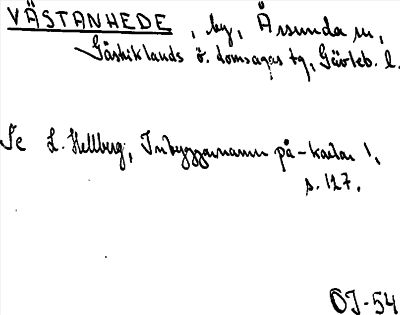 VÄSTANHEDE, by, Årsunda sn,
Gästriklands ö. domsagas tg, Gävleb. l.
Se L. Hellberg, Inbyggarnamn på -karlar 1,
s. 127.
OJ-54